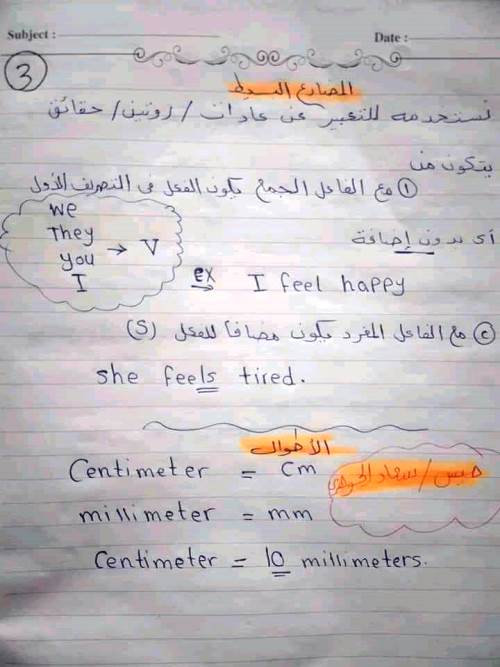 Subject :
Date :
3
المضارع البسيط
نستخدمه للتعبير عن عادات / روتين / حقائق
يتكون من
① مع الفاعل الجمع يكون الفعل فى التصريف الأول
أى بدون إضافة
We
They
you
I
→ V
ex → I feel happy
② مع الفاعل المفرد يكون مضافاً للفعل (S)
she feels tired.
الأطوال
Centimeter = Cm
ميس / سعاد
millimeter = mm
Centimeter = 10 millimeters.